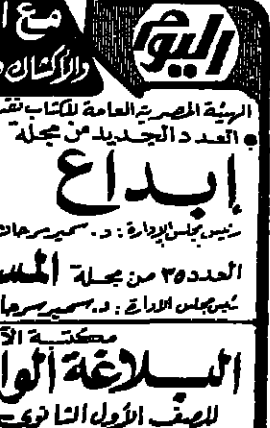 مع ا
اليوم
والأكشاك
الهيئة المصرية العامة للكتاب تقد
العدد الجديد من مجلة
إبداع
رئيس مجلس الإدارة : د. سمير سرحان
العدد ٣٥ من مجلة المس
رئيس مجلس الإدارة : د. سمير سرحا
مكتبة الآ
البلاغة الوا
للصف الأول الثانوى